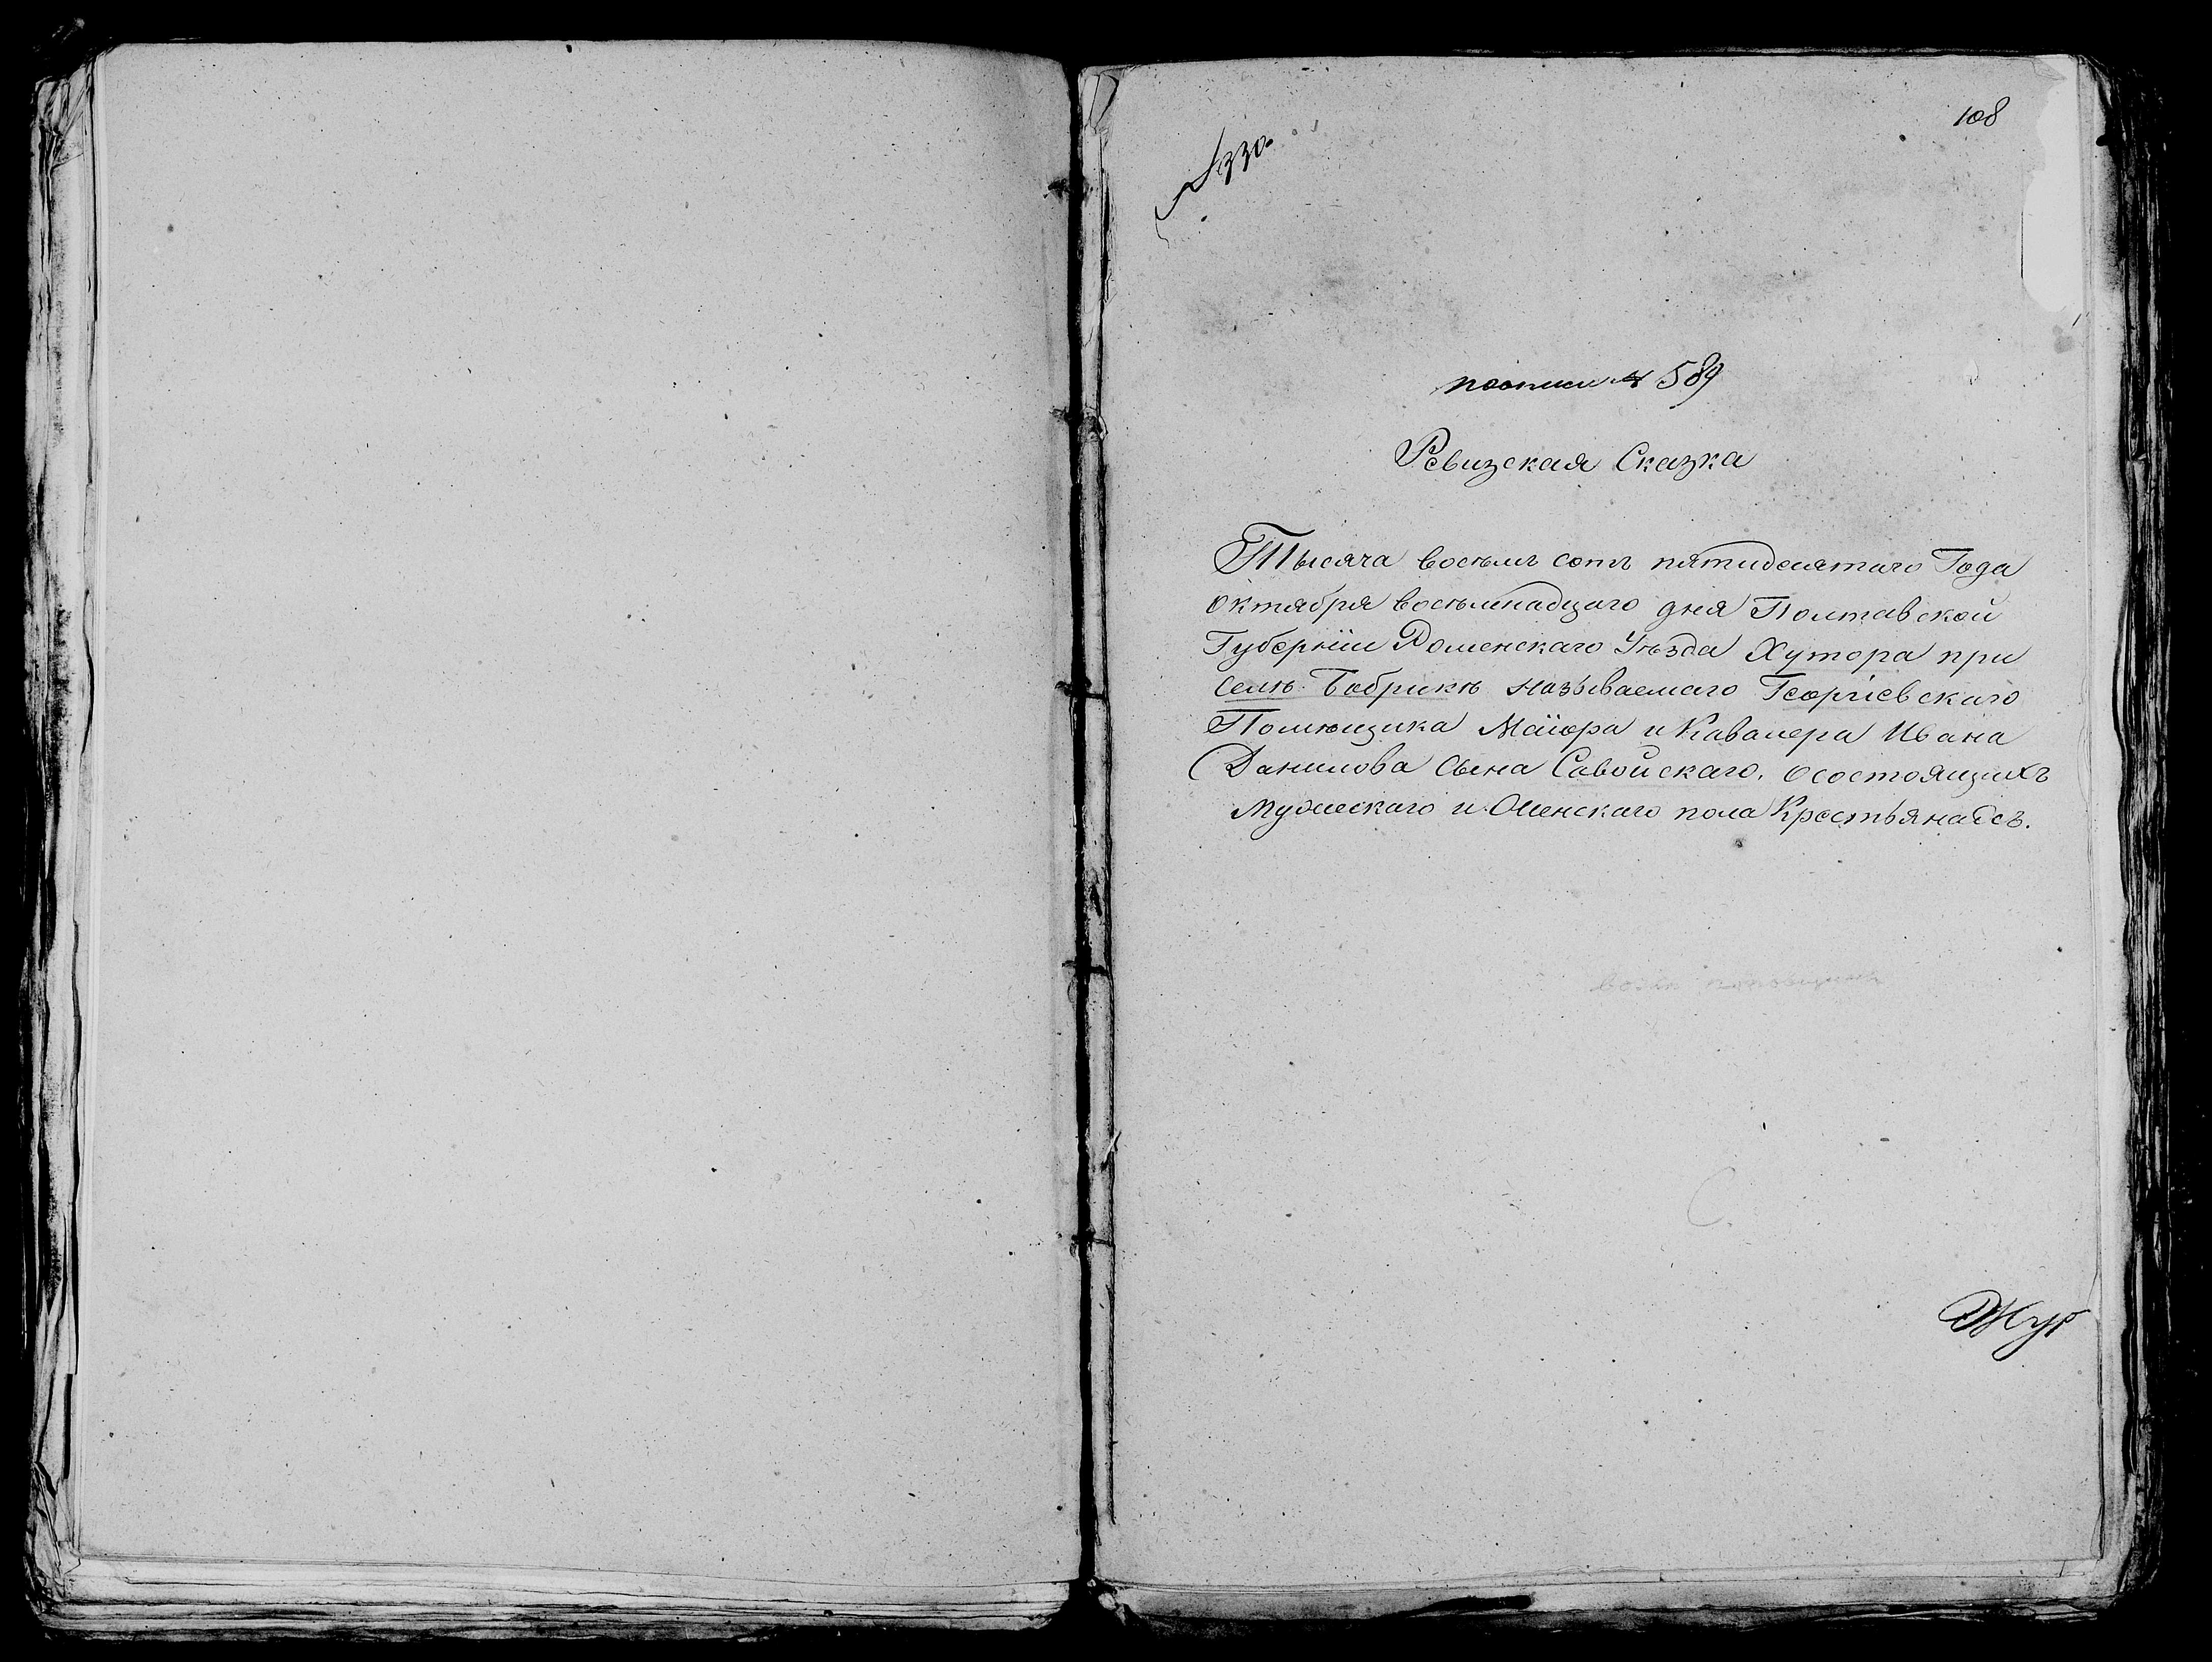 108
№ 330.
по описи № 589
Ревизская Сказка
Тысяча восемь сотъ пятидесятаго Года
Октября восемнадцаго дня Полтавской
Губерніи Роменскаго Уѣзда Хутора при
селѣ Бобрикѣ называемаго Георгіевскаго
Помѣщика Маіора и Кавалера Ивана
Данилова сына Савойскаго, о состоящихъ
Мужескаго и Женскаго пола Крестьянадсъ.